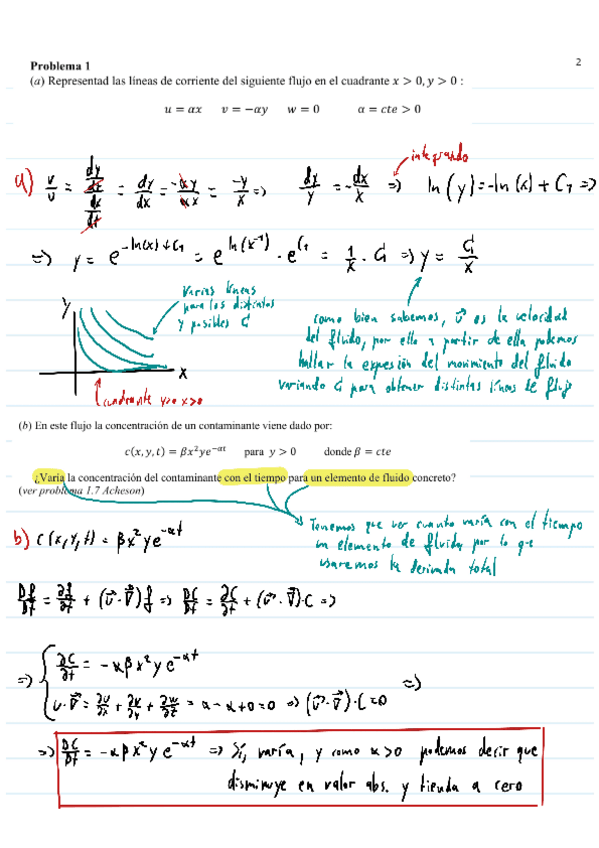 2
Problema 1
(a) Representad las líneas de corriente del siguiente flujo en el cuadrante x > 0, y > 0 :
u = αx v = −αy w = 0 α = cte > 0
integrando
a) v/u = (dy/dt)/(dx/dt) = dy/dx = -αy/αx = -y/x => dy/y = -dx/x => ln(y) = -ln(x) + C₁ =>
=> y = e^(-ln(x)+C₁) = e^(ln(x⁻¹)) · e^(C₁) = 1/x · C₁ => y = C₁/x
varias líneas
para los distintos
y posibles C₁
y
x
cuadrante y>0 x>0
como bien sabemos, v⃗ es la velocidad
del fluido, por ello a partir de ella podemos
hallar la expesión del movimiento del fluido
variando C₁ para obtener distintas líneas de flujo
(b) En este flujo la concentración de un contaminante viene dado por:
c(x, y, t) = βx²ye^(−αt) para y > 0 donde β = cte
¿Varía la concentración del contaminante con el tiempo para un elemento de fluido concreto?
(ver problema 1.7 Acheson)
Tenemos que ver cuanto varía con el tiempo
un elemento de fluido por lo que
usaremos la derivada total
b) C(x,y,t) = βx²ye^(-αt)
Df/Dt = ∂f/∂t + (v⃗·∇⃗)f => DC/Dt = ∂C/∂t + (v⃗·∇⃗)·C =>
=> { ∂C/∂t = -αβx²ye^(-αt)
v·∇⃗ = ∂u/∂x + ∂v/∂y + ∂w/∂z = α - α + 0 = 0 => (v⃗·∇⃗)·C = 0 =>
=> DC/Dt = -αβx²ye^(-αt) => Sí, varía, y como α>0 podemos decir que
disminuye en valor abs. y tienda a cero